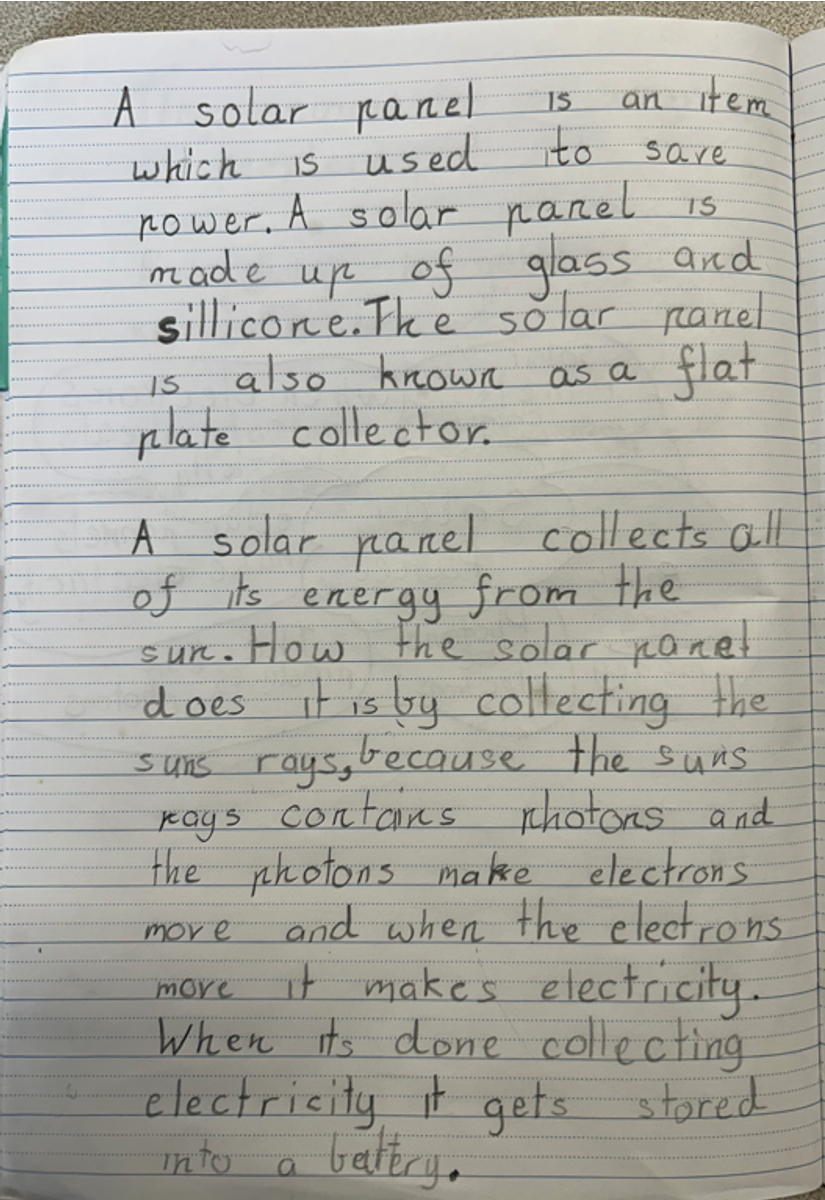 A solar panel is an item
which is used to save
power. A solar panel is
made up of glass and
sillicone. The solar panel
is also known as a flat
plate collector.
A solar panel collects all
of its energy from the
sun. How the solar panel
does it is by collecting the
suns rays, because the suns
rays contains photons and
the photons make electrons
move and when the electrons
move it makes electricity.
When its done collecting
electricity it gets stored
into a battery.